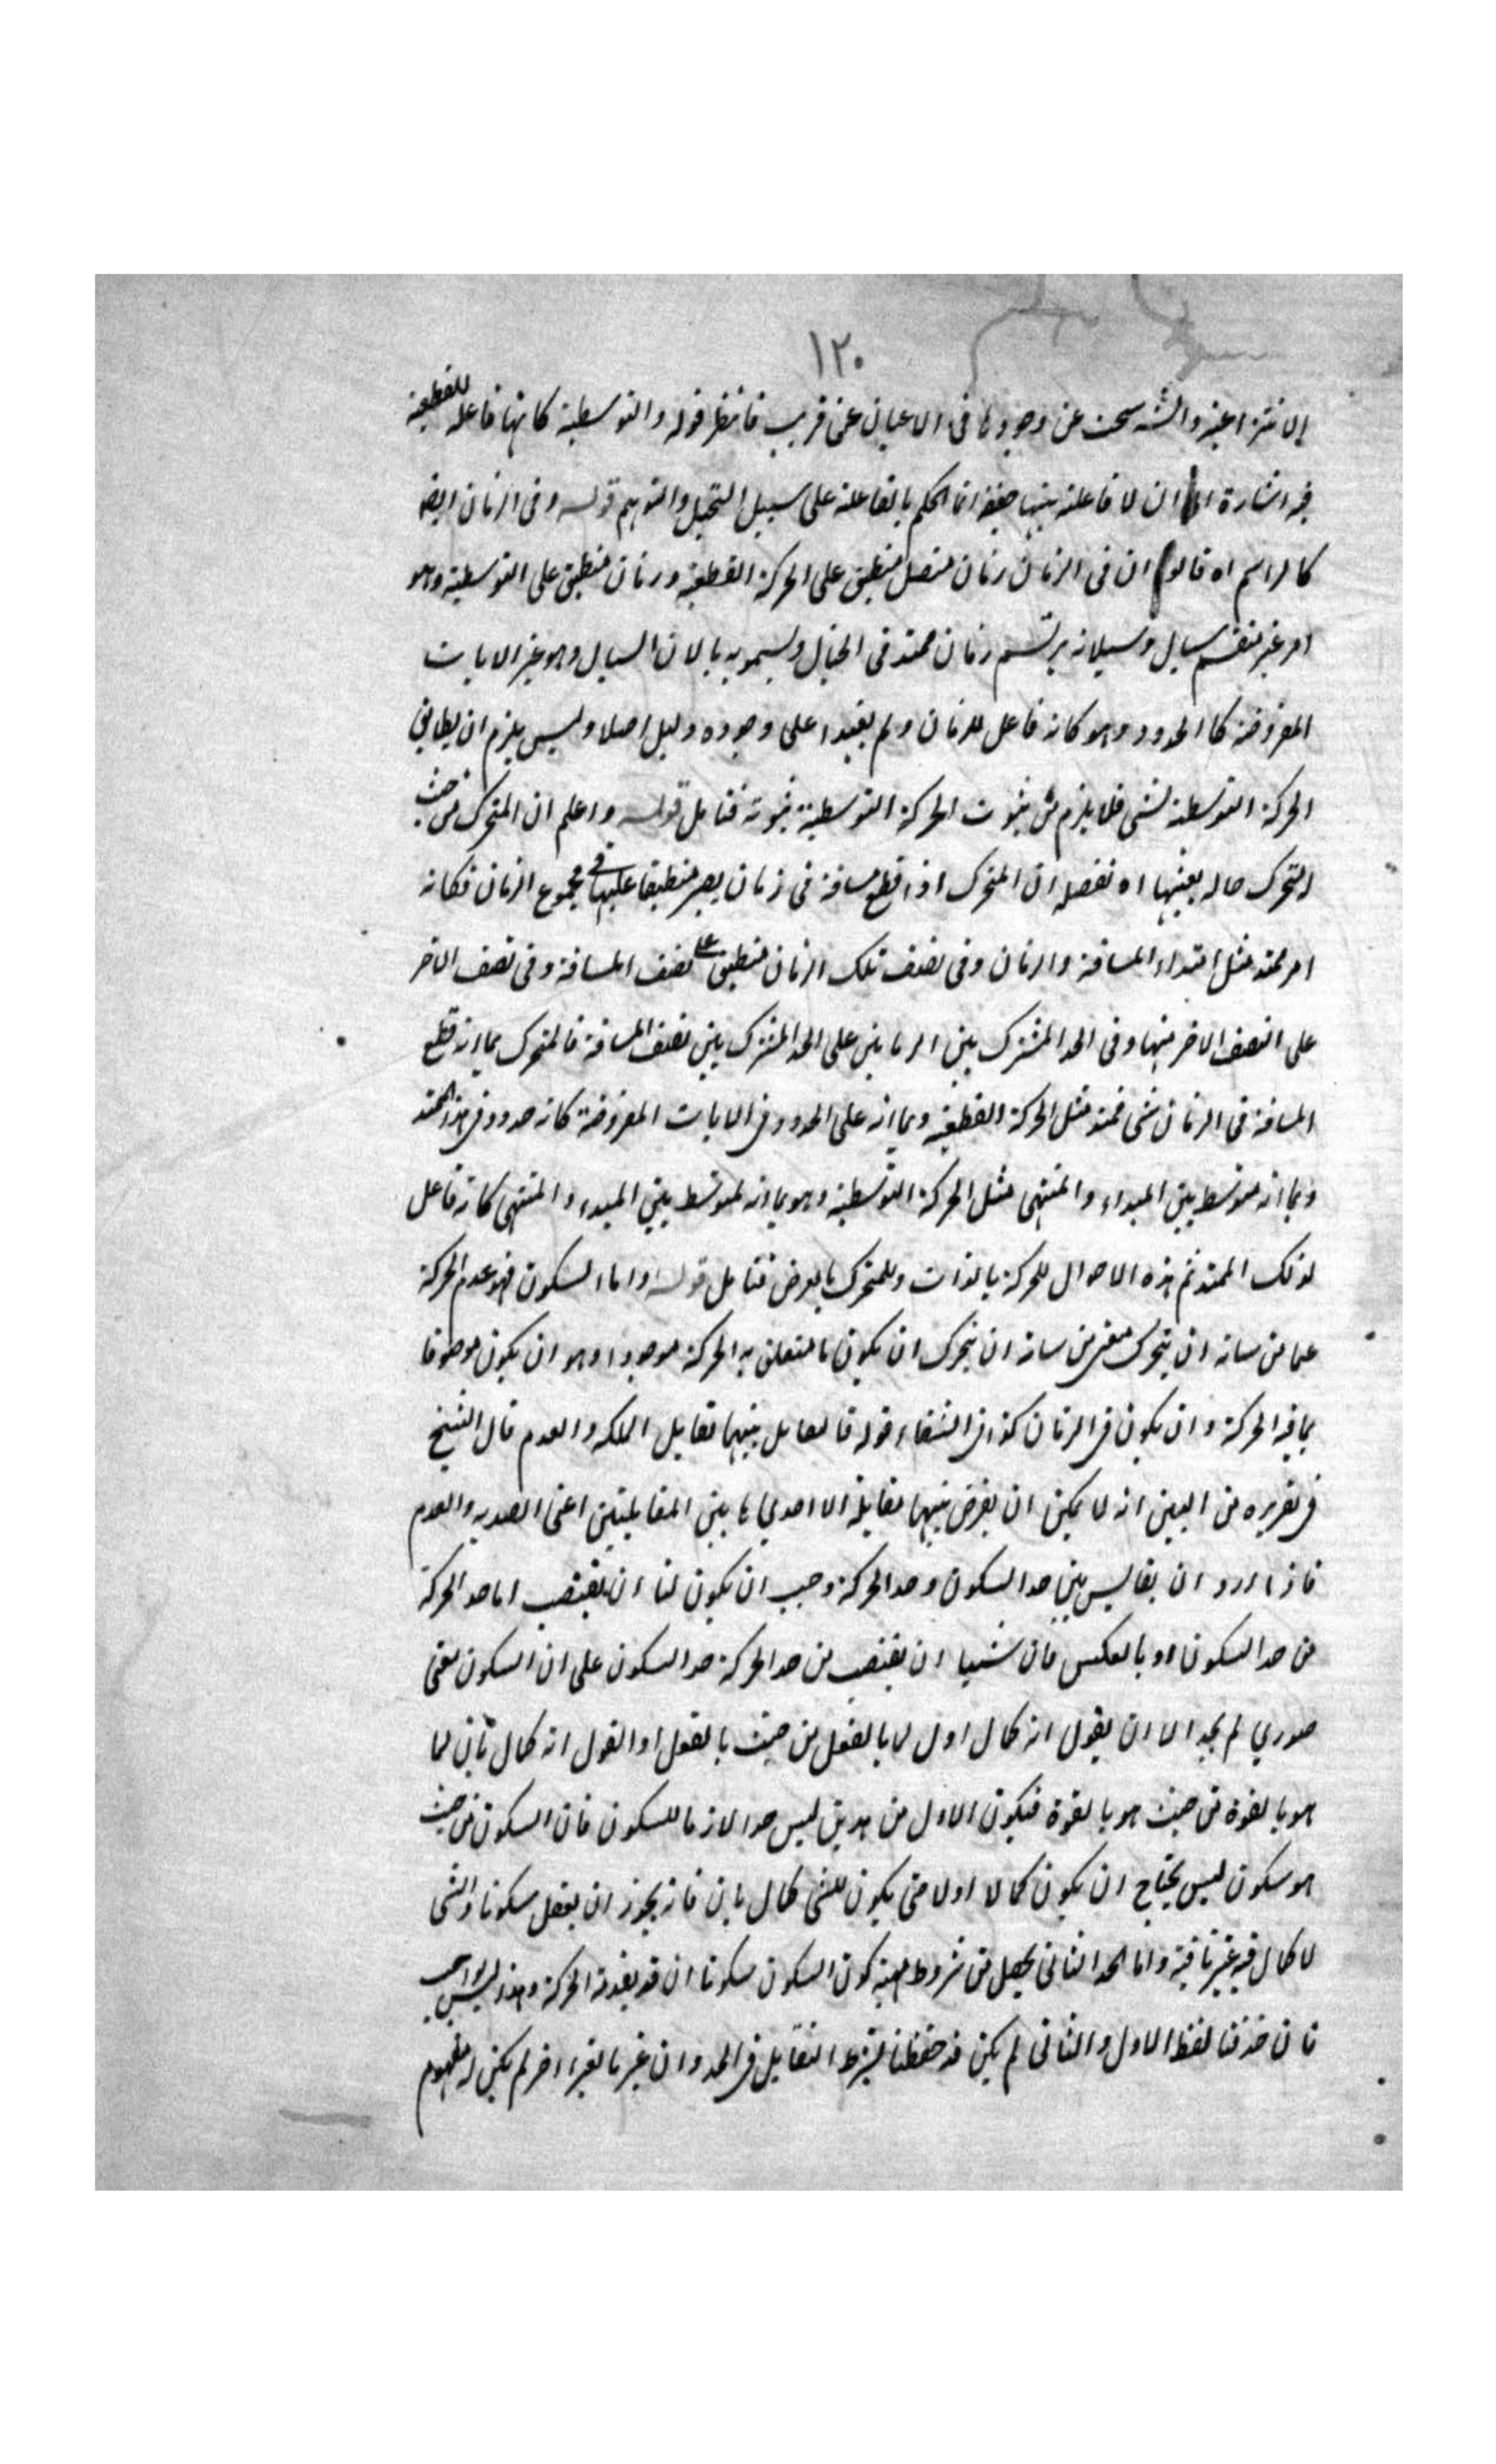 ١٢٠
الانتزاعية والشه سحت عن وجودها فى الاعيان عن قريب فانتظر قوله والتوسطية كانها فاعلة للقطعية
فيه اشارة الى ان لا فاعلية بينها حقيقة انما الحكم بالفاعلة على سبيل التخيل والتوهم قوله وفى الزمان ايضا
كالراسم اه قالوا ان فى الزمان زمان متصل منطبق على الحركة القطعية وزمان منطبق على التوسطية وهو
امر غير منقسم سيال وسيلانه يرتسم زمان ممتد فى الخيال ويسمونه بالان السيال وهو غير الانات
المفروضة كالحدود وهو كانه فاعل للزمان ولم يقيموا على وجوده دليل اصلا وليس يلزم ان يطابق
الحركة التوسطية لشى فلا يلزم من ثبوت الحركة التوسطية ثبوته فتامل قوله واعلم ان المتحرك من حيث
التحرك حاله بعينها اه تفصله ان المتحرك اذا قطع مسافة فى زمان يصير منطبقا عليها فى مجموع الزمان فكانه
امر ممتد مثل امتداد المسافة والزمان وفى نصف تلك الزمان منطبق على نصف المسافة وفى نصف الاخر
على النصف الاخر منها وفى الحد المشترك بين الزمانين على الحد المشترك بين نصف المسافة فالمتحرك بما انه قطع
المسافة فى الزمان شى ممتد مثل الحركة القطعية وبما انه على الحدود فى الانات المفروضة كانه حدود فى هذا الممتد
وبما انه متوسط بين المبداء والمنتهى مثل الحركة التوسطية وهو بما انه متوسط بين المبدء والمنتهى كانه فاعل
لذلك الممتد ثم هذه الاحوال للحركة بالذات وللمتحرك بالعرض فتامل قوله واما السكون فهو عدم الحركة
عما من شانه ان يتحرك معنى من شانه ان يتحرك ان يكون ما يتعلق به الحركة موجودا وهو ان يكون موصوفا
بما فيه الحركة وان يكون فى الزمان كذا فى الشفاء قوله فالتقابل بينهما تقابل الملكة والعدم قال الشيخ
فى تقريره من البين انه لا يمكن ان يفرض بينهما مقابلة الا احدى ما بين المقابلتين اعنى الضدية والعدم
فاذا اردو ان يقايس بين حد السكون وحد الحركة وجب ان يكون لنا ان يقتضب اما حد الحركة
من حد السكون او بالعكس فان شيئا ان يقتضب من حد الحركة حد السكون على ان السكون معنى
صوري لم يجد الا ان يقول انه كمال اول لا بالفعل من حيث بالفعل او القول انه كمال ثان لما
هو بالقوة من حيث هو بالقوة فيكون الاول من هذين ليس حدا لازما للسكون فان السكون من حيث
هو سكون ليس يحتاج ان يكون كمالا اولا حتى يكون للشى كمال ثان فانه يجوز ان يعقل سكونا والشى
لا كمال فيه غير فيه واما الحد الثانى يجعل من شروط مهية كون السكون سكونا ان قد يقدمه الحركة وهذا ليس بواجب
فان حذفنا لفظ الاول والثانى لم يكن قد حفظنا شرط التقابل فى الحد وان غيرنا تغيرا اخر لم يكن له مفهوم